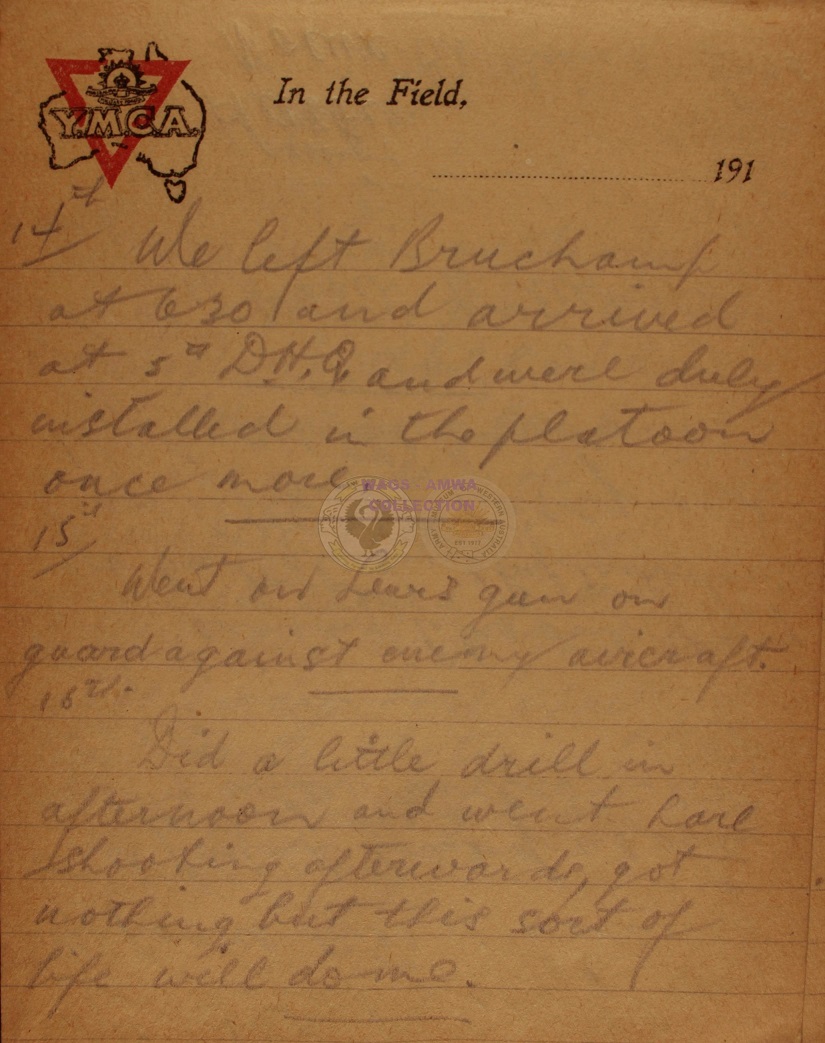 Y.M.C.A.
In the Field,
191
14th We left Bruchamp
at 630 and arrived
at 5th D.H.Q. and were duly
installed in the platoon
once more.
WAGS AMWA
COLLECTION
15th
Went on Lewis gun on
guard against enemy aircraft.
16th.
Did a little drill in
afternoon and went hare
shooting afterwards, got
nothing but this sort of
life will do me.